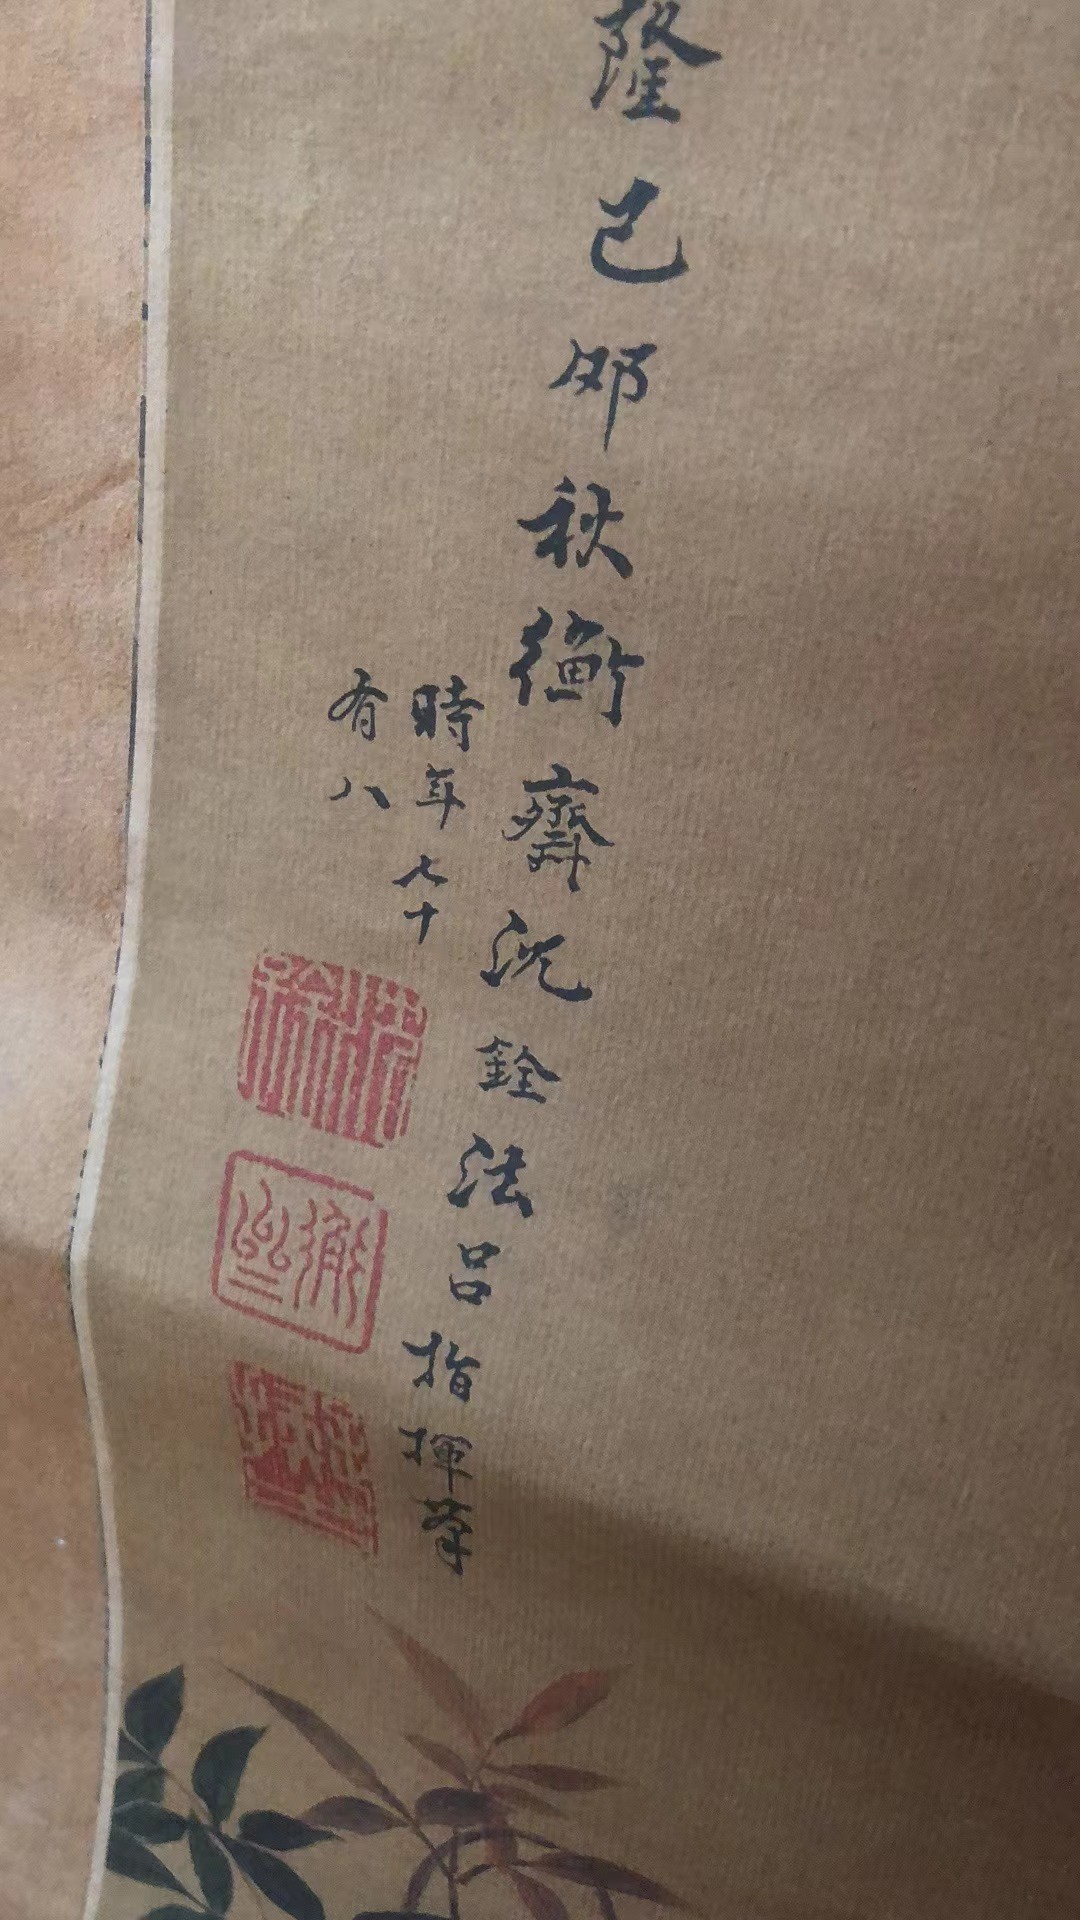 隆己卯秋衡齋沈銓法呂指揮筆
時年七十
有八